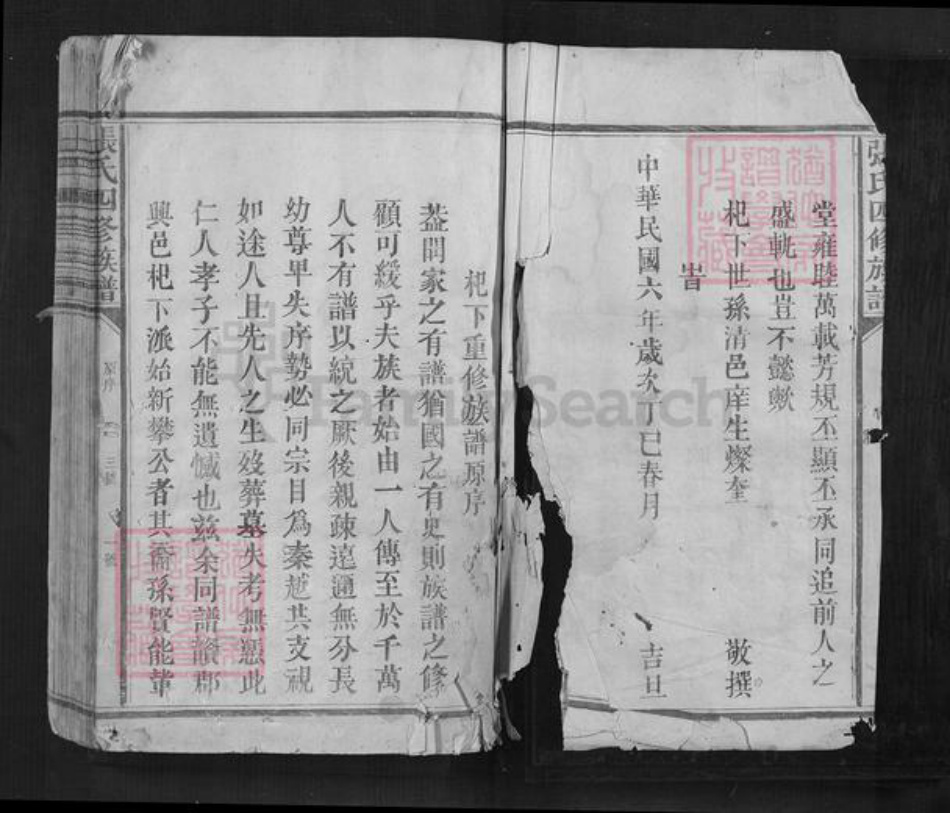 張氏四修族譜
堂雍睦萬載芳規丕顯丕承同追前人之
盛軌也豈不懿歟
杞下世孫清邑庠生燦奎 敬撰
旹
中華民國六年歲次丁巳春月 吉旦
杞下重修族譜原序
葢聞家之有譜猶國之有史則族譜之修
顧可緩乎夫族者始由一人傳至於千萬
人不有譜以統之厥後親疎遠邇無分長
幼尊卑失序勢必同宗目爲秦越其支視
如途人且先人之生歿葬墓失考無慿此
仁人孝子不能無遺憾也兹余同譜贛郡
興邑杞下派始新攀公者其裔孫賢能輩
張氏四修族譜
原序
FamilySearch